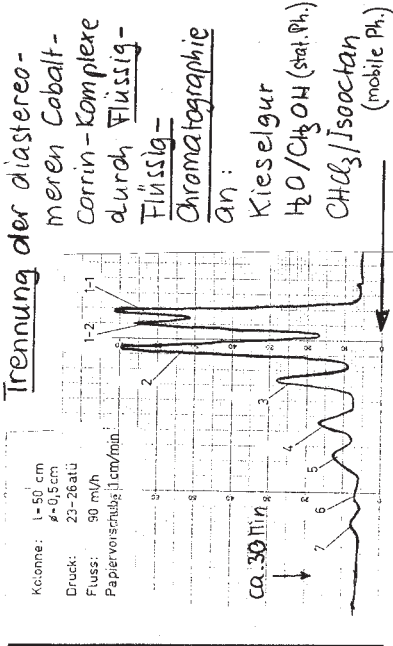 Trennung der diastereo-
meren Cobalt-
Corrin-Komplexe
durch Flüssig-
Flüssig-
Chromatographie
an:
Kieselgur
H₂O/CH₃OH (stat. Ph.)
CHCl₃/Isooctan
(mobile Ph.)
Kolonne: l=50 cm
ø=0,5cm
Druck: 23-26atü
Fluss: 90 ml/h
Papiervorschub: 1 cm/min
ca.30 min
7
6
5
4
3
2
1-2
1-1